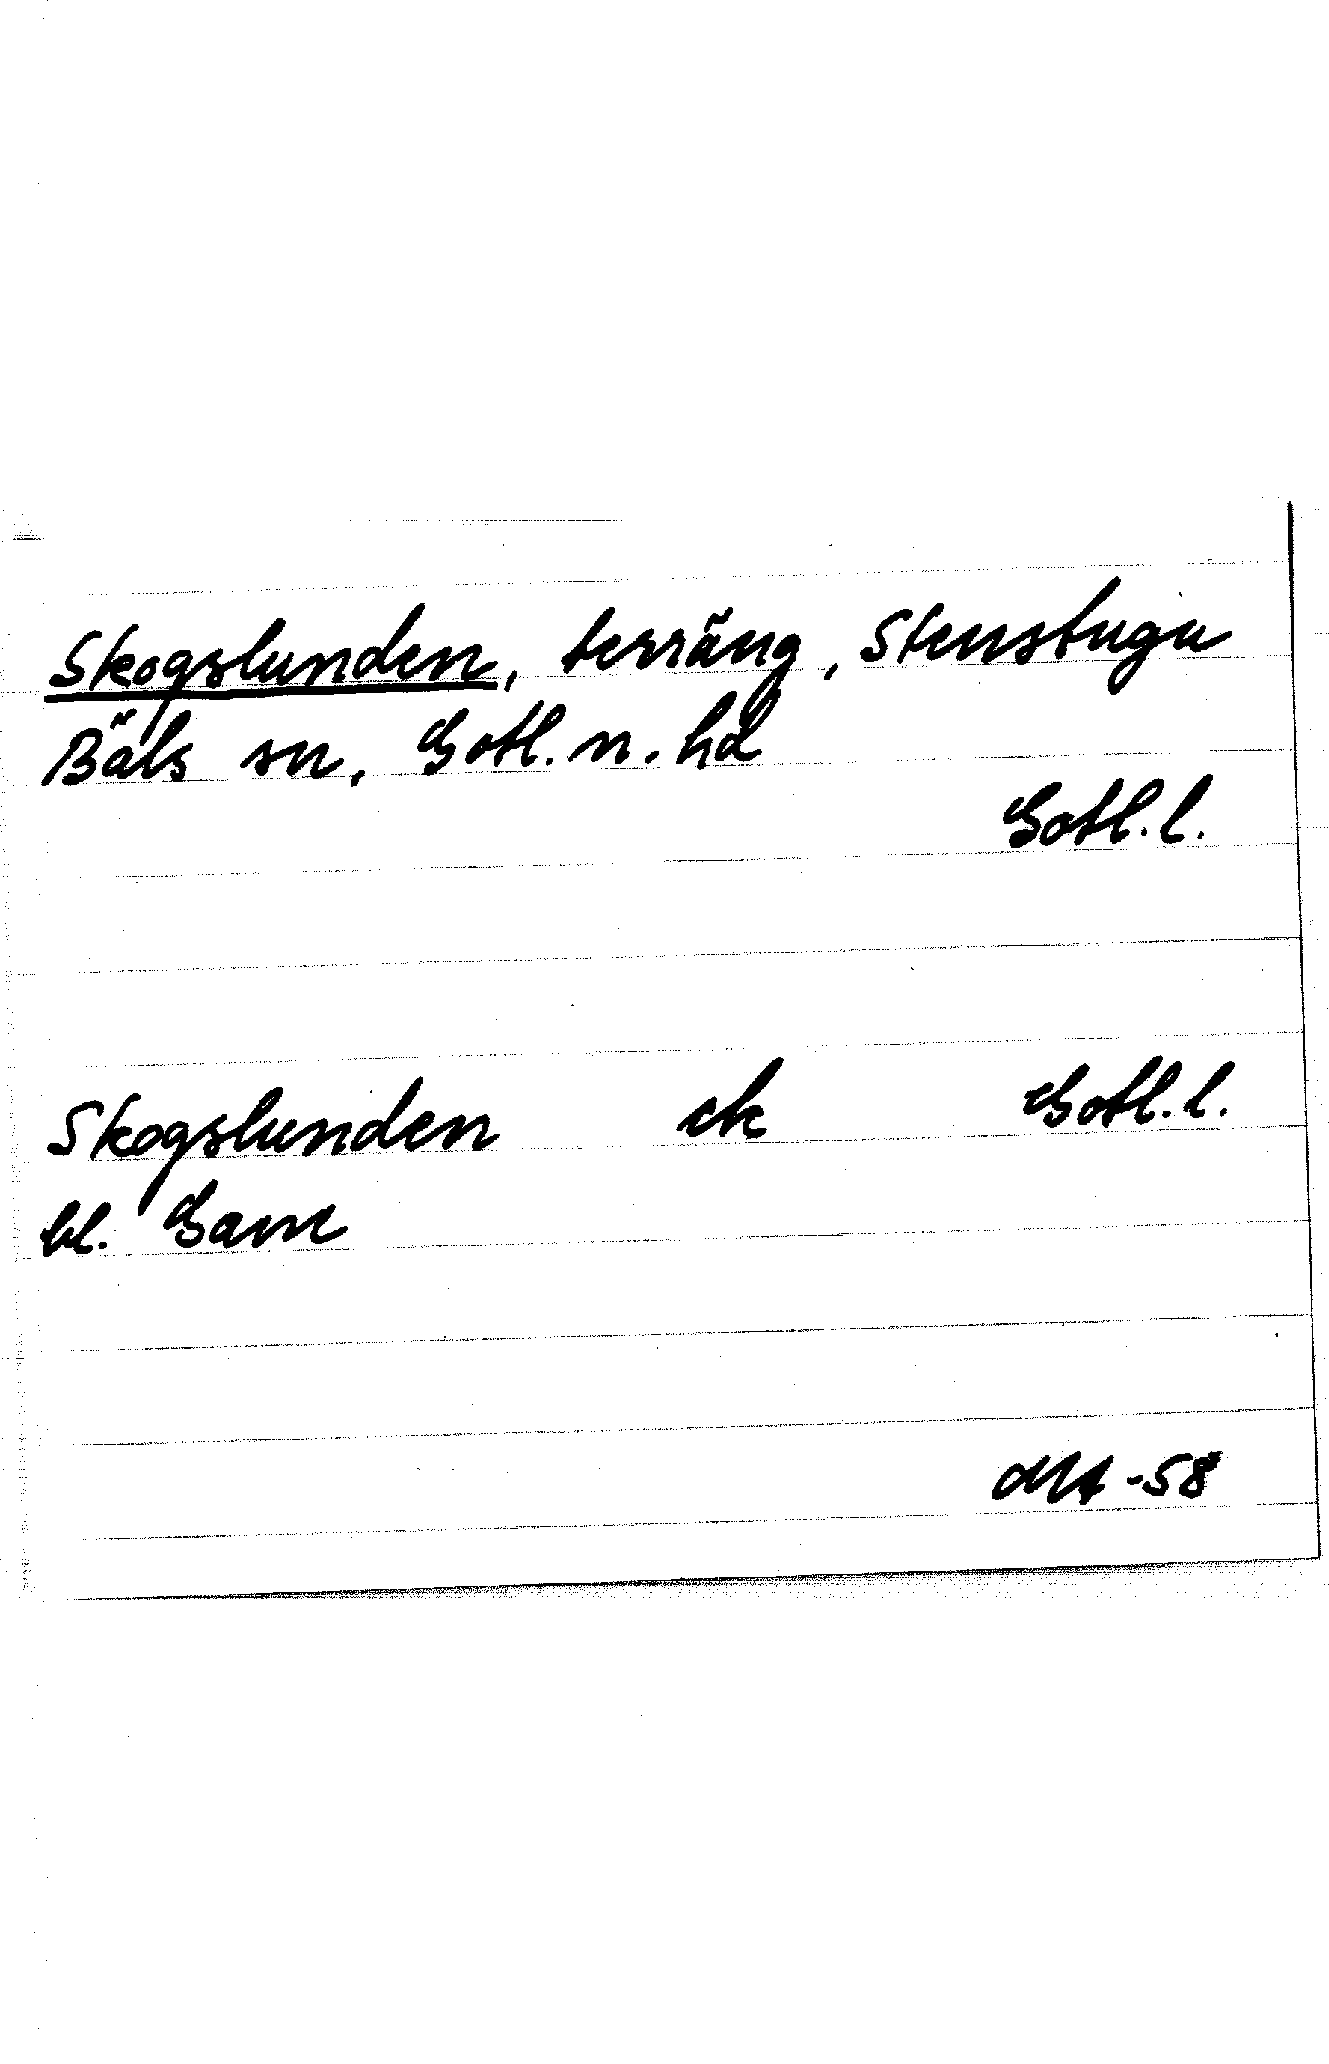 Skogslunden, terräng, Stenstugu
Bäls sn, Gotl. n. hd
Gotl. l.
Skogslunden ek Gotl. l.
bl. Gam
-58